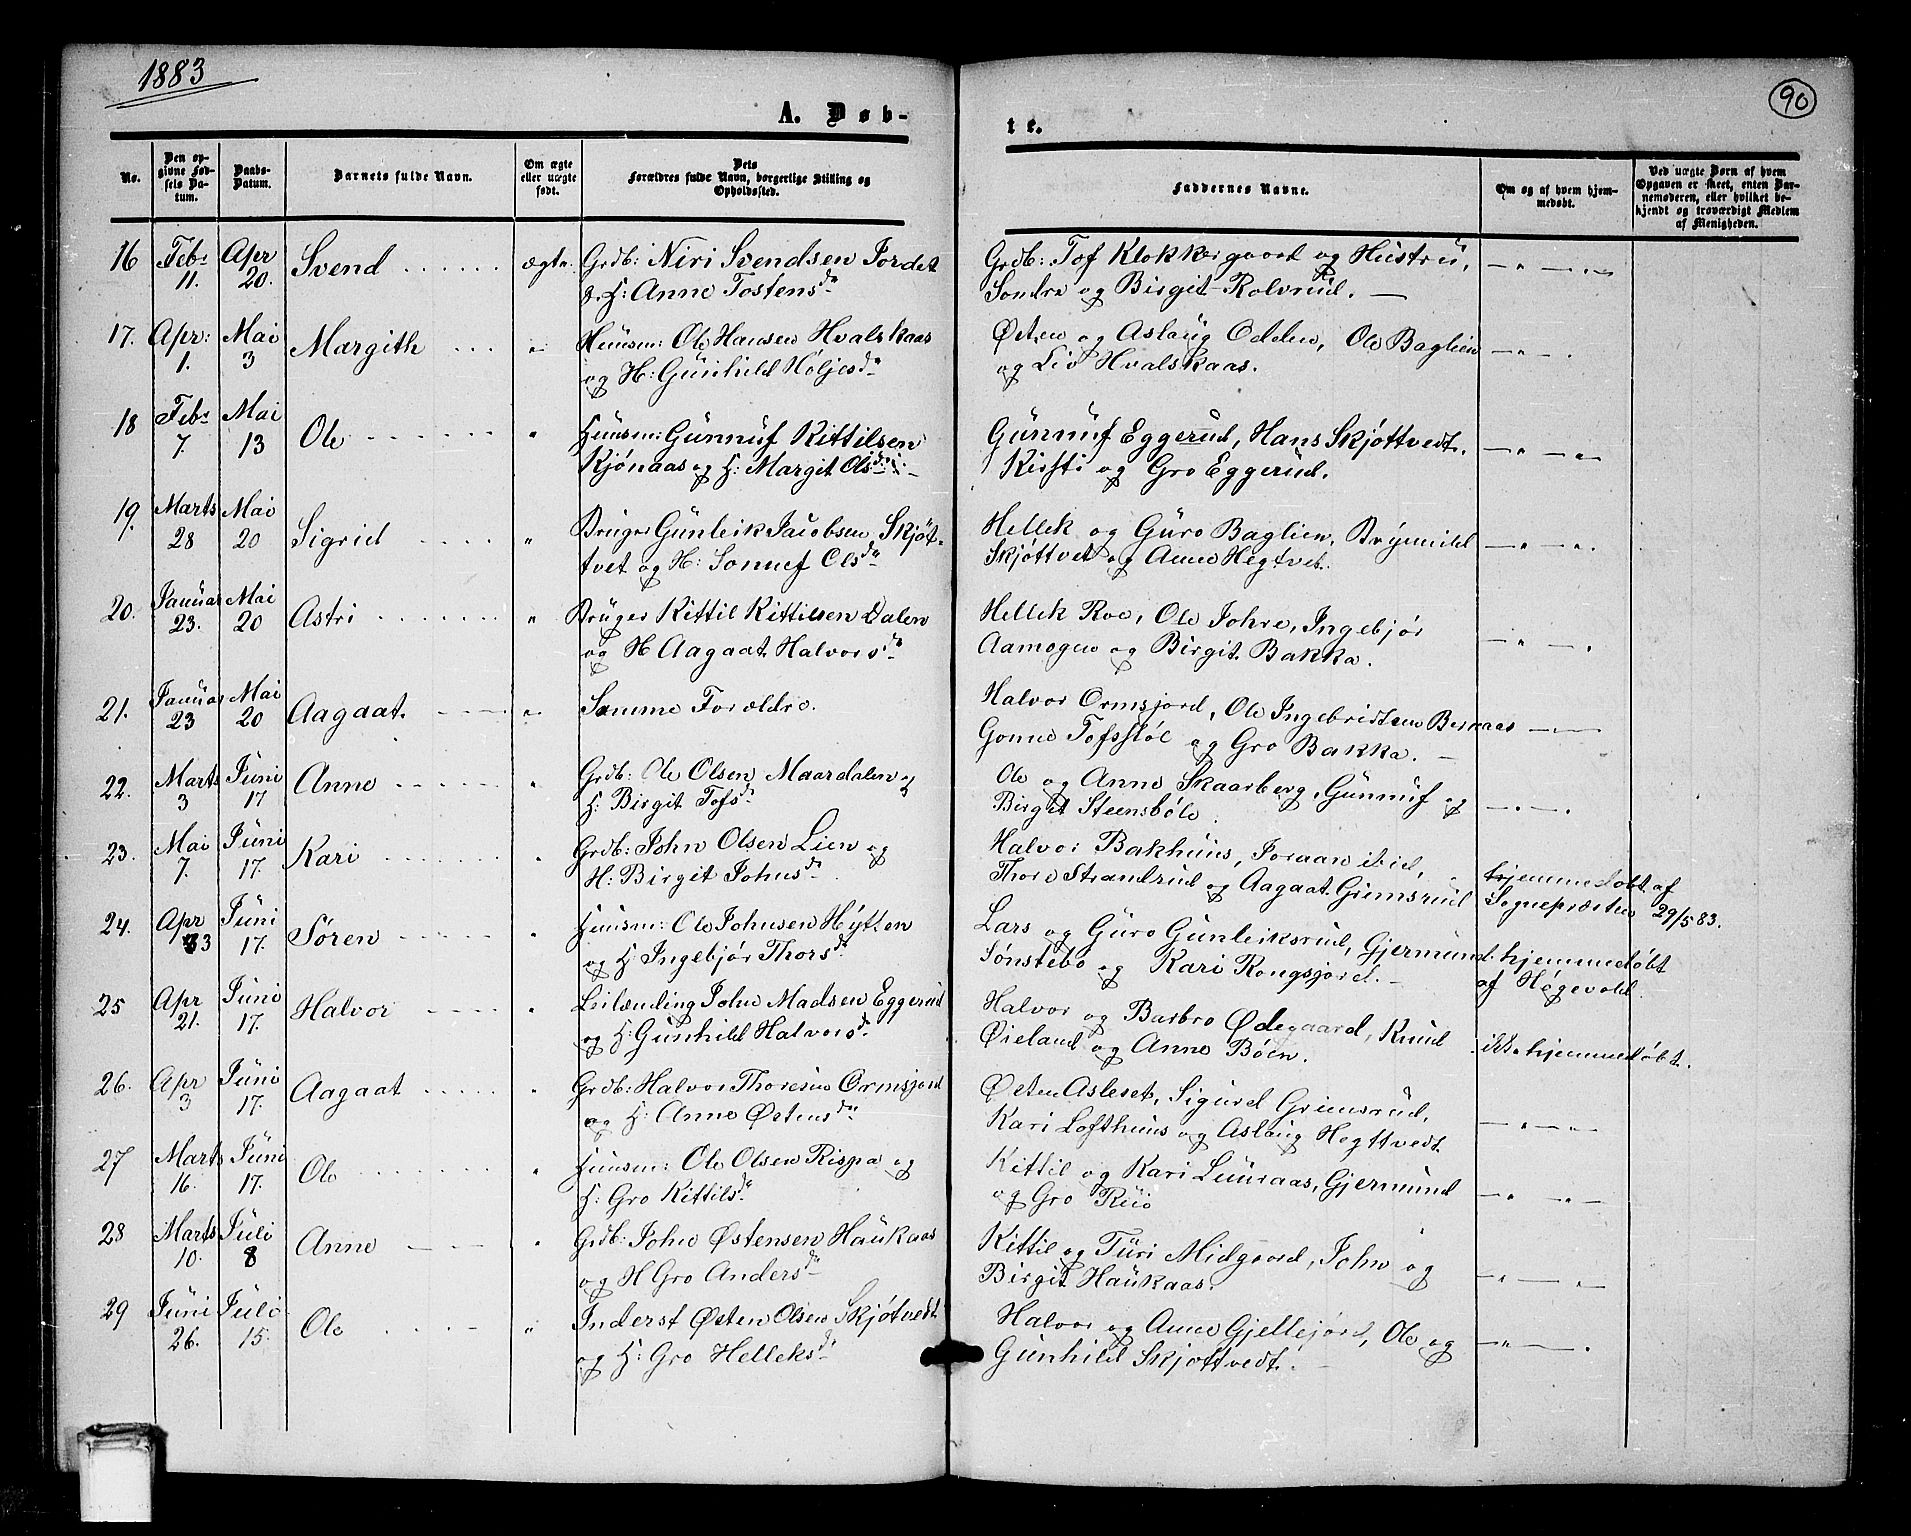 1883
90
A. Døb-
te.
No.
Den op-
givne Fød-
sels Da-
tum.
Daabs-
Datum.
Barnets fulde Navn.
Om ægte
eller uægte
født.
Dets
Forældres fulde Navn, borgerlige Stilling og
Opholdssted.
Faddernes Navne.
Om og af hvem hjem-
medøbt.
Ved uægte Børn af hvem
Opgaven er skeet, enten Bar-
nemoderen, eller hvilket be-
kjendt og troværdigt Medlem
af Menigheden.
16 Febr Apr Svend ægte Grdb: Niri Svendsen Jordet Grdb: Tof Klokkergaard og Hustru,
11. 20. & H: Anne Tostensdr Søndre og Birgit Rolvrud.
17. Apr: Mai Margith " Huusm: Ole Hansen Hvalskaas Østen og Aslaug Odden, Ole Baglien
1. 3 og H: Gunhild Høljesdr og Liv Hvalskaas.
18 Febr Mai Ole " Huusm: Gunnuf Kittilsen Gunnuf Eggerud, Hans Skjøttvedt.
7. 13 Kjønaas og H: Margit Olsdr Kirsti og Gro Eggerud.
19. Marts Mai Sigrid " Bruger Gunleik Jacobsen Skjøt- Hellek og Guro Baglien, Brynild
28 20 tvet og H: Sonnef Olsdr Skjøttvet og Anne Hegtvet.
20. Januar Mai Astri " Bruger Kittil Kittilsen Dalen Hellek Roe, Ole Johre, Ingebjør
23. 20 og H Aagaat Halvorsdr Aamogen og Birgit Bakka.
21. Januar Mai Aagaat. " Samme Forældre. Halvor Ormsjord, Ole Ingebridtsen Bernaas
23 20 Gonne Tofsstøl og Gro Bakka.
22. Marts Juni Anne " Grdb: Ole Olsen Maardalen og Ole og Anne Skaarberg, Gunnuf og
3 17 H: Birgit Tofsdr Birgit Steensbøle.
23. Mai Juni Kari " Grdb: John Olsen Lien og Halvor Bakhuus, Joraan ibid,
7. 17. H: Birgit Johnsdr Thore Strandrud og Aagaat Grimsrud hjemmedøbt af
Sognepræsten 29/5 83.
24. Apr Juni Søren " Huusm: Ole Johnsen Hytten Lars og Guro Gunleiksrud, Gjermund hjemmedøbt
17. og H Ingebjør Thorsdr Sønstebø og Kari Rongsjord. af Høgevold.
25 Apr Juni Halvor " Leilænding John Madsen Eggerud Halvor og Barbro Ødegaard, Knud
21. 17. og H: Gunhild Halvorsdr Øieland og Anne Bøen. ikke hjemmedøbt.
26. Apr Juni Aagaat " Grdb: Halvor Thoresen Ormsjord Østen Asleset, Sigurd Grimsrud,
3 17. og H: Anne Østensdr Kari Lofthuus og Aslaug Hegttvedt.
27 Marts Juni Ole " Huusm: Ole Olsen Rispa og Kittil og Kari Luuraas, Gjermund
16. 17. H: Gro Kittilsdr og Gro Ruio
28 Marts Juli Anne " Grdb: John Østensen Haukaas Kittil og Turi Midgaard, John og
10. 8 og H Gro Andersdr Birgit Haukaas.
29 Juni Juli Ole " Inderst Østen Olsen Skjøtvedt Halvor og Anne Gjellejord, Ole og
26. 15. og H: Gro Helleksdr Gunhild Skjøttvedt.